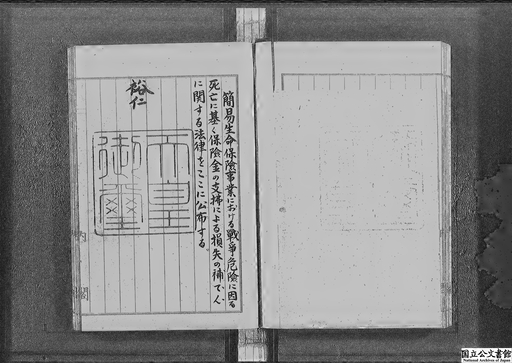 簡易生命保險事業における戰爭危險に因る
死亡に基く保險金の支拂による損失の補てん
に関する法律をここに公布する。
裕仁
天皇
御璽
内閣
国立公文書館
National Archives of Japan